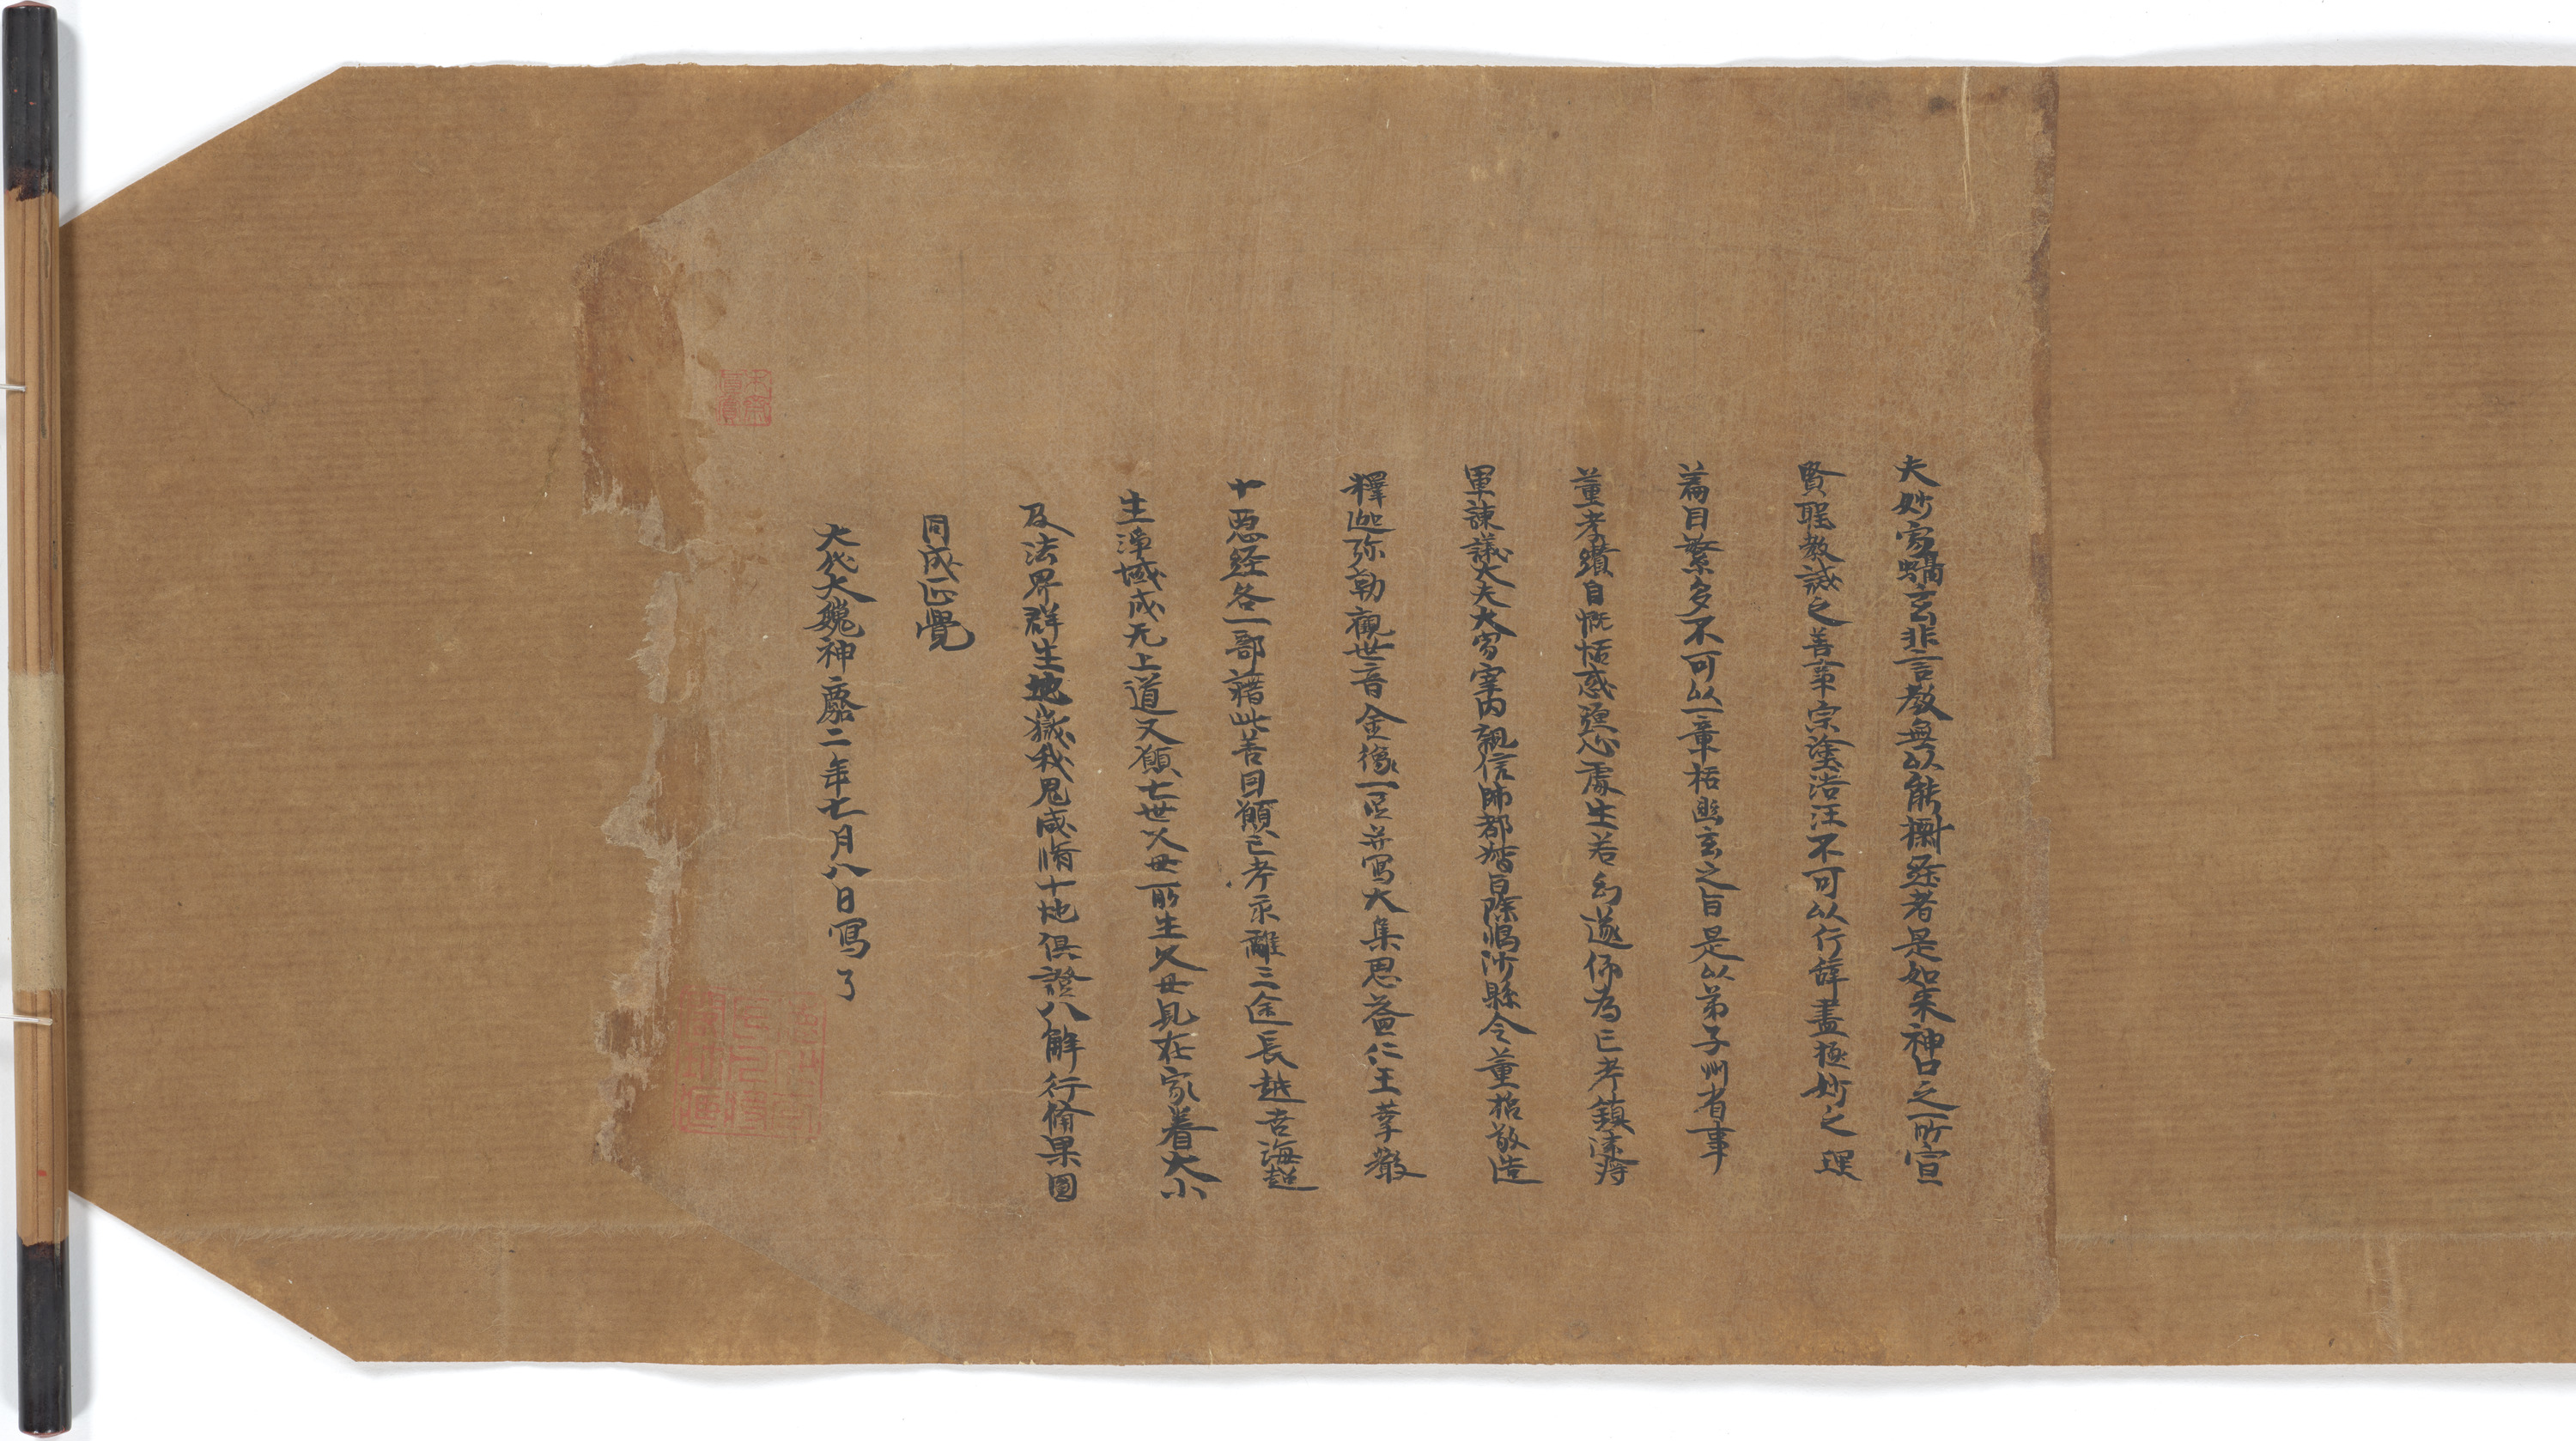 夫妙寂蠕玄非言教無以能㯳経者是如来神口之所宣
賢聖教誡之善章宗塗浩汪不可以行辞盡極妙之理
萹目繁多不可以一章栝幽玄之旨是以弟子州省事
董孝纘自慨恬惑强心處生若幻遂仰為亡考鎮遠将
軍諫議大夫大冢宰内親信師都督臨沙縣令董招敬造
釋迦弥勒觀世音金像一區并寫大集思益仁王孝敬
十惡経各一部藉此善因願亡考永離三途長越苦海超
生淨域成无上道又願七世父母所生父母見在家眷大小
及法界群生地獄我鬼咸脩十地俱證八解行脩果圓
同成正覺
大代大魏神䴥二年七月八日寫了